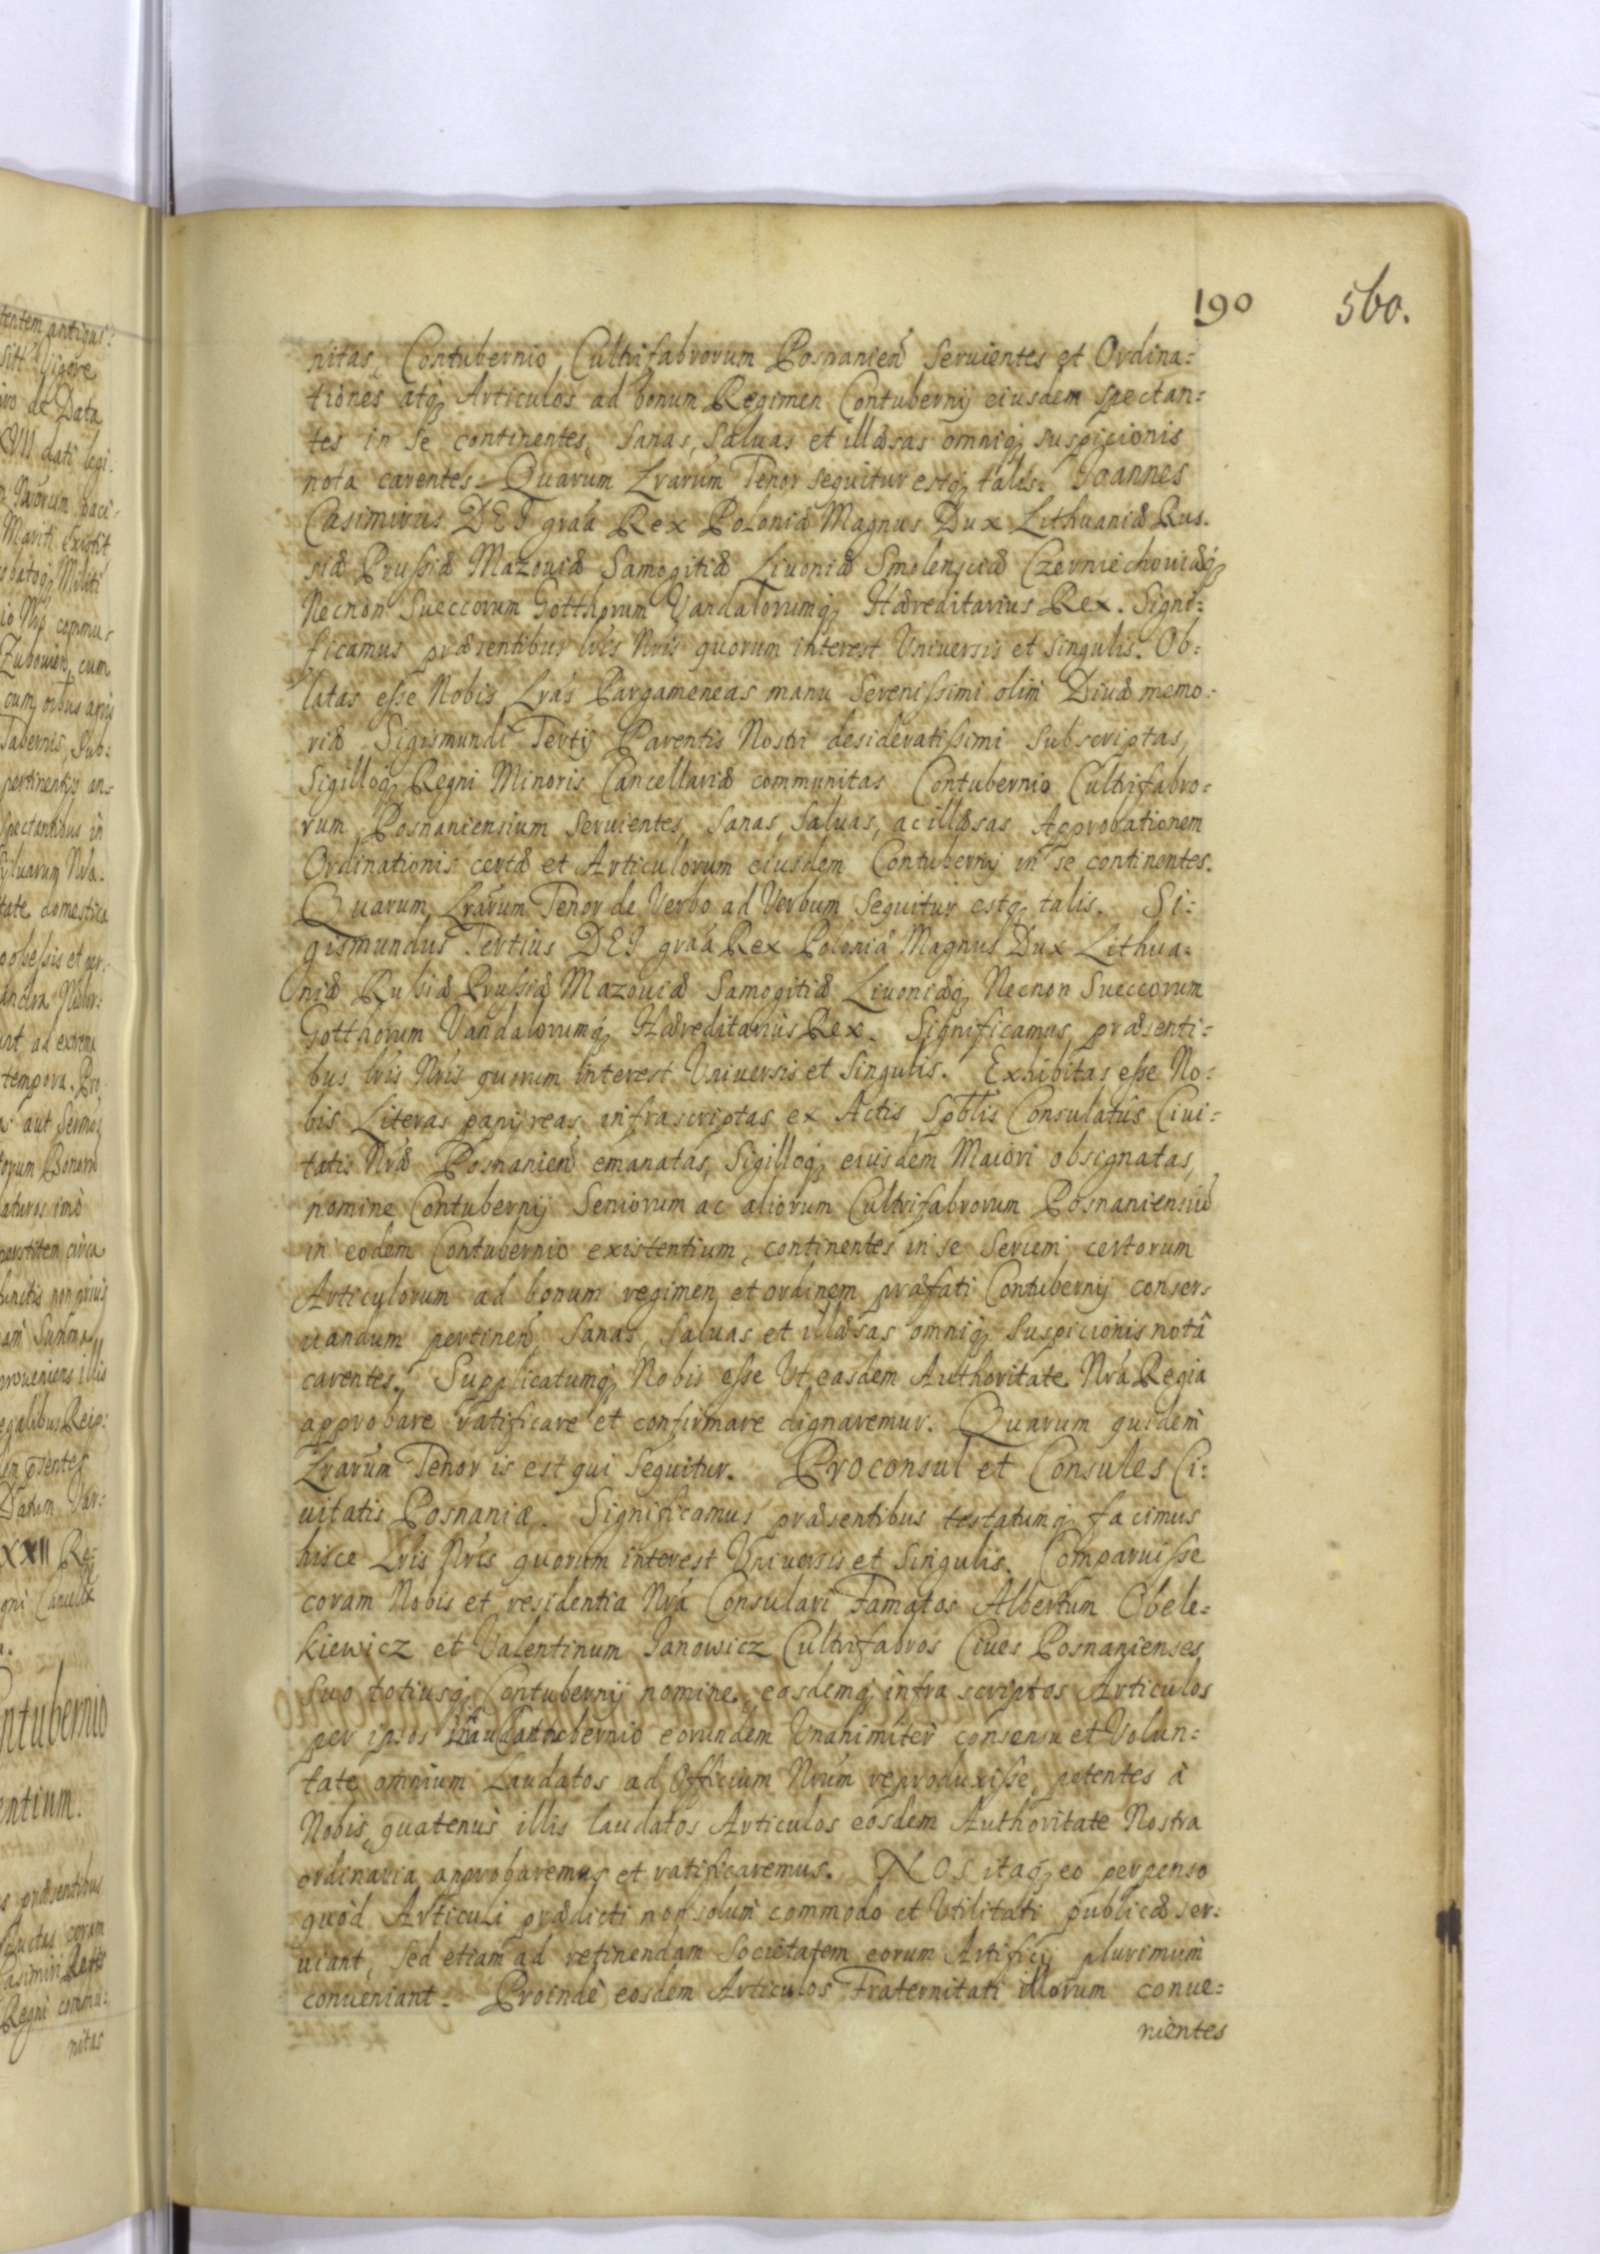 190 560.
nitas, Contubernio Cultrifabrorum Posnanien̄ Seruientes et Ordina:
tiones atq̃ Articulos ad bonum Regimen Contubernij eiusdem spectan:
tes in se continentes, sanas, saluas et illæsas omniq̃ suspicionis
nota carentes. Quarum Lrarum Tenor sequitur estq̃ talis. Joannes
Casimirus DEI gra͠a Rex Poloniæ Magnus Dux Lithuaniæ Rus:
siæ Prussiæ Mazouiæ Samogitiæ Liuoniæ Smolensciæ Czerniechouiæq̃
Necnon Sueccorum Gotthorum Vandalorumq̃ Hæreditarius Rex. Signi:
ficamus præsentibus lris Nris quorum interest Vniuersis et singulis. Ob:
latas esse Nobis Lras Pargameneas manu Serenissimi olim Diuæ memo:
riæ Sigismundi Tertij Parentis Nostri desideratissimi subscriptas,
Sigilloq̃ Regni Minoris Cancellariæ communitas Contubernio Cultrifabro:
rum Posnaniensium Seruientes, Sanas, Saluas, ac illæsas Approbationem
Ordinationis certæ et Articulorum eiusdem Contubernij in se continentes.
Quarum Lrarum Tenor de Verbo ad Verbum sequitur estq̃ talis. Si:
gismundus Tertius DEI gra͠a Rex Poloniæ Magnus Dux Lithua:
niæ Russiæ Prussiæ Mazouiæ Samogitiæ Liuoniæq̃ Necnon Sueccorum
Gotthorum Vandalorumq̃ Hæreditarius Rex. Significamus præsenti:
bus lris Nris quorum interest Vniuersis et singulis. Exhibitas esse No:
bis Literas papijreas infrascriptas ex Actis Spbl̃is Consulatûs Ciui:
tatis Nræ Posnanien̄ emanatas, Sigilloq̃ eiusdem Maiori obsignatas,
nomine Contubernij Seniorum ac aliorum Cultrifabrorum Posnaniensiũ
in eodem Contubernio existentium, continentes in se Seriem certorum
Articulorum ad bonum regimen et ordinem præfati Contubernij conser:
uandum pertinen̄, Sanas, saluas et illæsas omniq̃ suspicionis notâ
carentes, Supplicatumq̃ Nobis esse Vt easdem Authoritate Nra Regia
approbare ratificare et confirmare dignaremur. Quarum quidem
Lrarum Tenor is est qui sequitur. Proconsul et Consules Ci:
uitatis Posnaniæ. Significamus præsentibus testatumq̃ facimus
hisce Lris Nris quorum interest Vniuersis et Singulis. Comparuisse
coram Nobis et residentia Nra Consulari Famatos Albertum Obele:
kiewicz et Valentinum Janowicz Cultrifabros Ciues Posnanienses
suo totiusq̃ Contubernij nomine, easdemq̃ infra scriptos Articulos
per ipsos Contubernio eorundem Vnanimiter consensu et Volun:
tate omnium Laudatos ad Officium Nrum reproduxisse, petentes à
Nobis, quatenus illis laudatos Articulos eosdem Authoritate Nostra
ordinaria approbaremus et ratificaremus. NOS itaq̃ eo perpenso
quòd Articuli prædicti non solùm commodo et Vtilitati publicæ ser:
uiant, sed etiam ad retinendam Societatem eorum Artificij plurimum
conueniant. Proindè eosdem Articulos Fraternitati illorum conue:
nientes